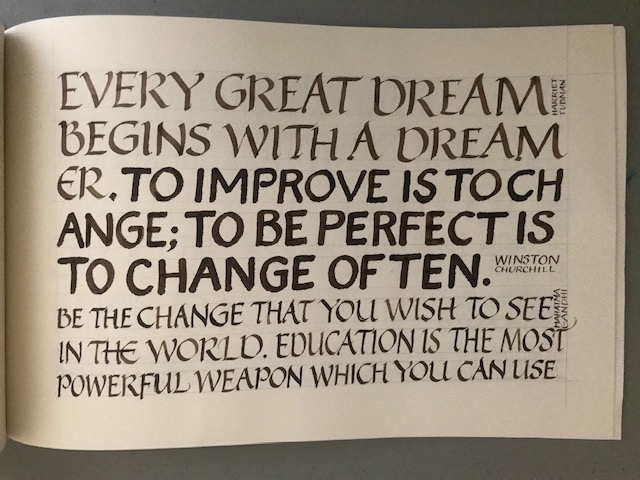 EVERY GREAT DREAM
HARRIET
TUBMAN
BEGINS WITH A DREAM
ER. TO IMPROVE IS TO CH
ANGE; TO BE PERFECT IS
TO CHANGE OFTEN.
WINSTON
CHURCHILL
BE THE CHANGE THAT YOU WISH TO SEE
MAHATMA
GANDHI
IN THE WORLD. EDUCATION IS THE MOST
POWERFUL WEAPON WHICH YOU CAN USE